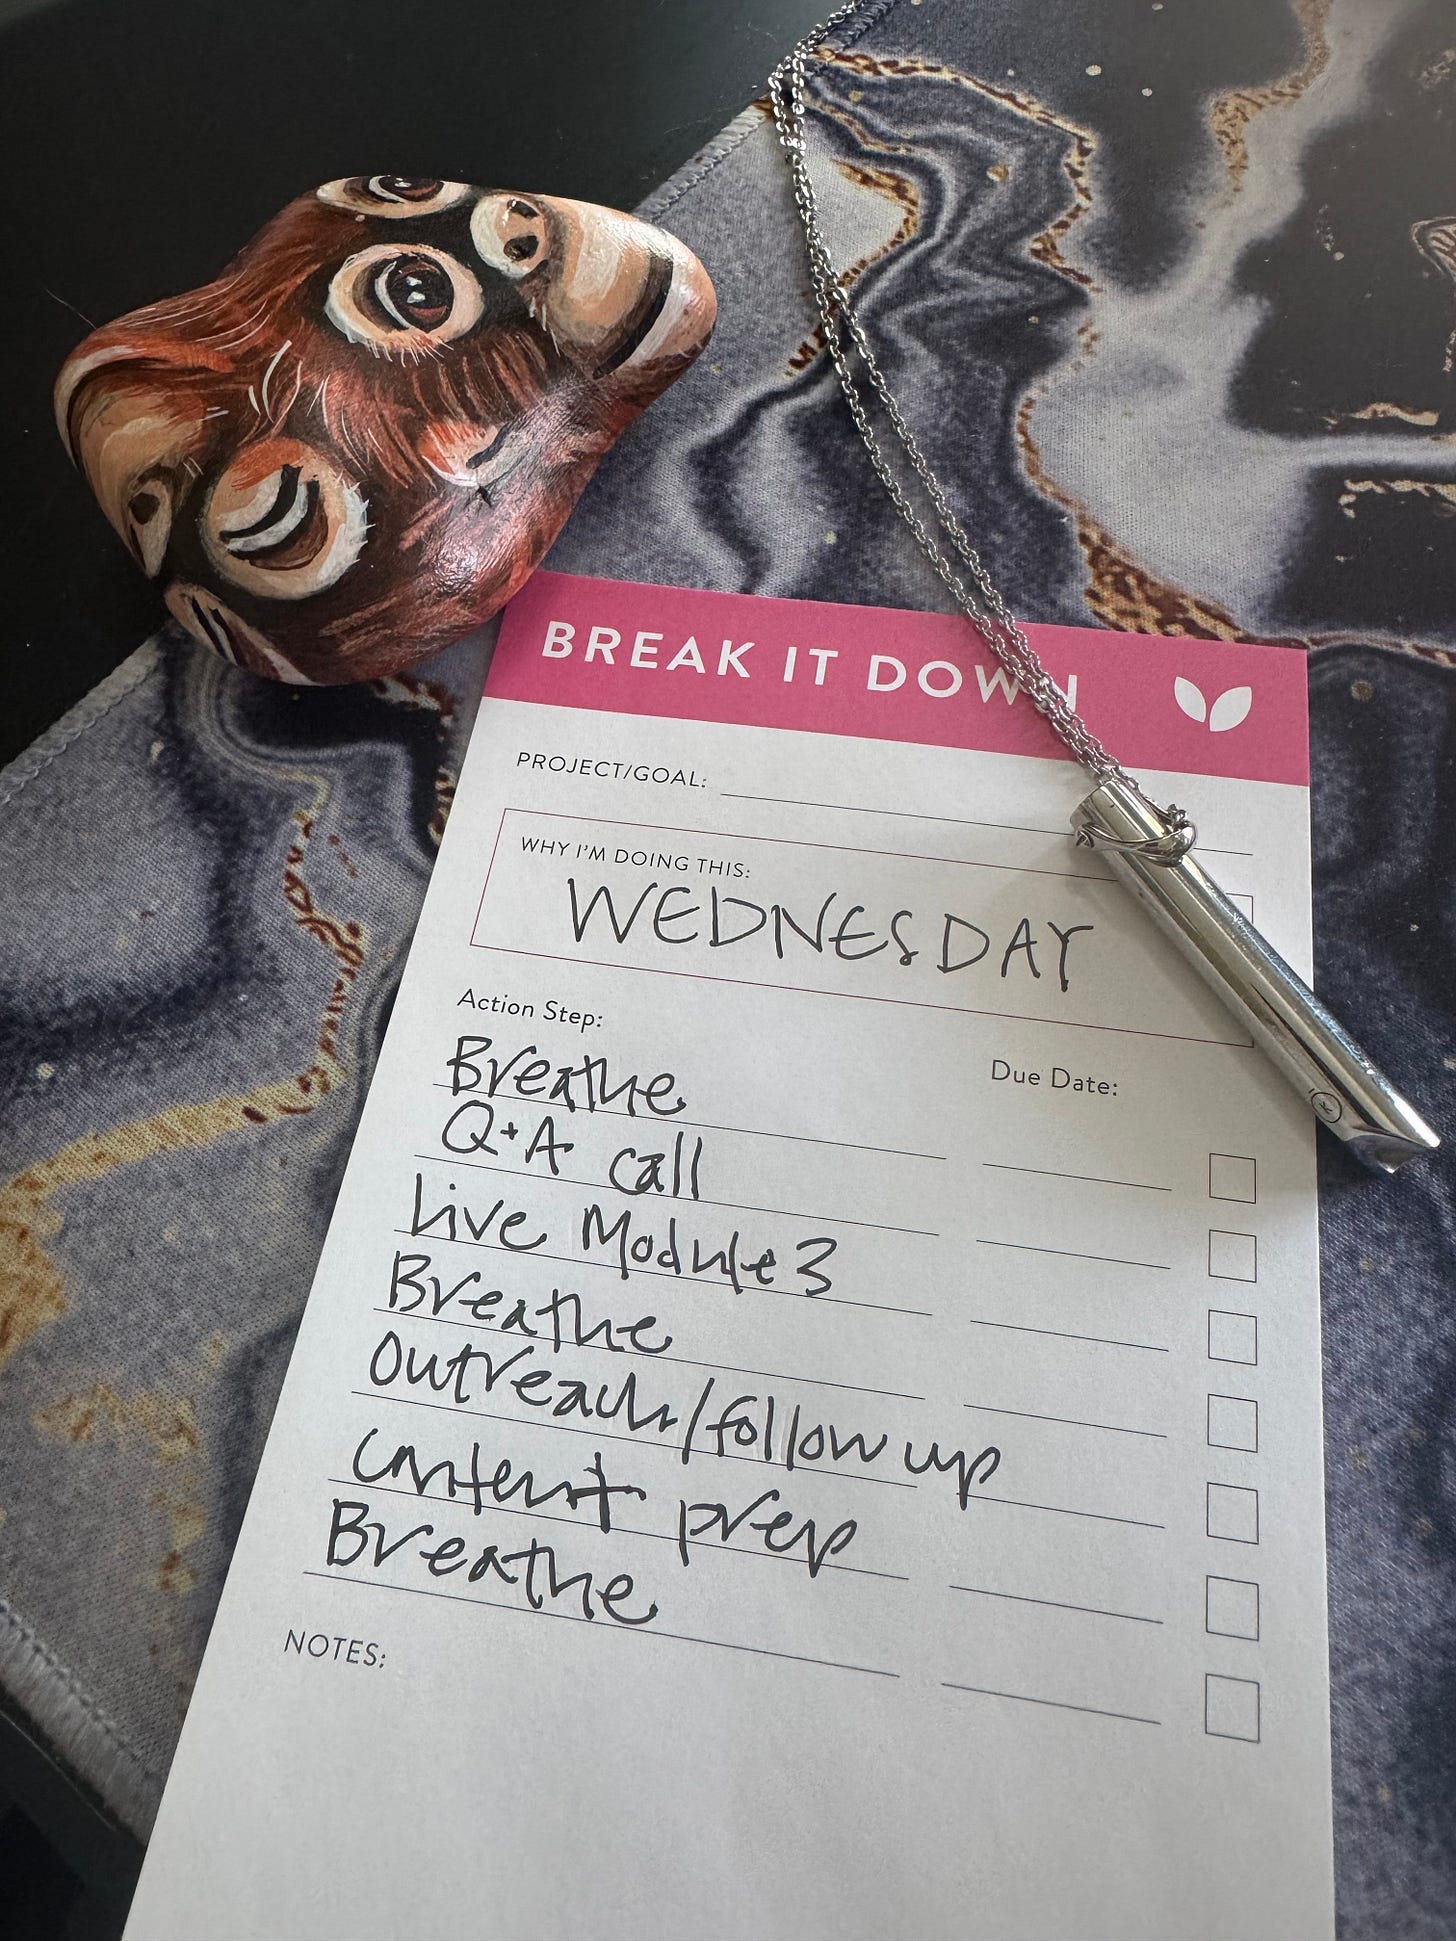 BREAK IT DOWN
PROJECT/GOAL:
WHY I'M DOING THIS:
WEDNESDAY
Action Step:
Due Date:
Breathe
Q+A call
Live Module 3
Breathe
Outreach/follow up
Content prep
Breathe
NOTES: